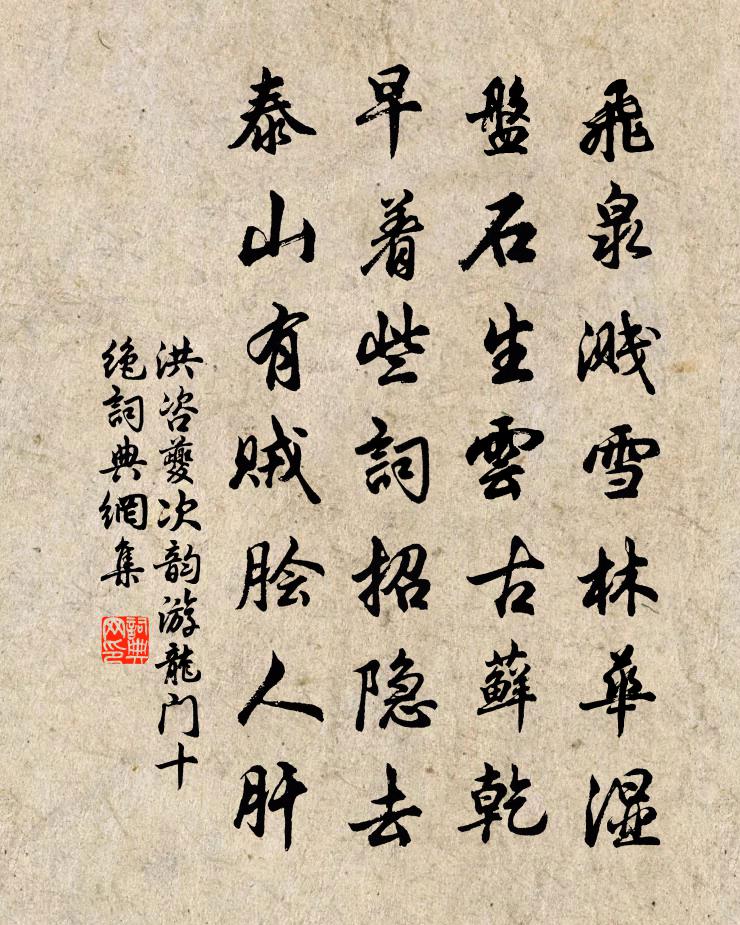 飛泉濺雪林華湿
盤石生雲古蘚乾
早着些詞招隐去
泰山有贼脍人肝
洪咨夔次韵游龍门十
绝詞典網集
詞典
网印